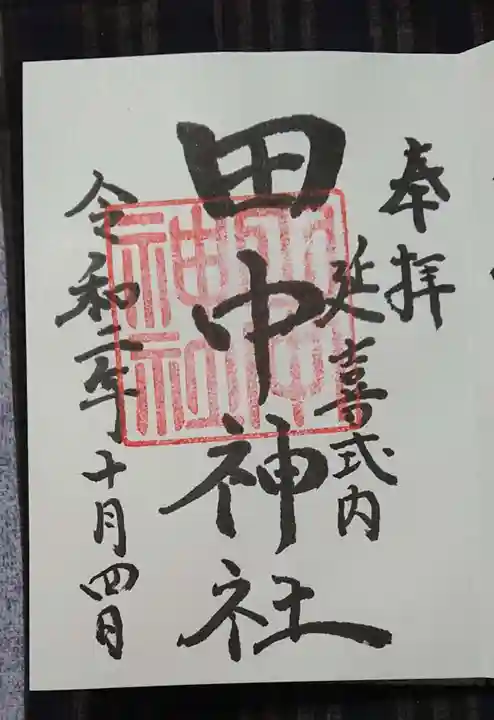 奉拝
延喜式内
田中神社
令和二年十月四日
田中
神社